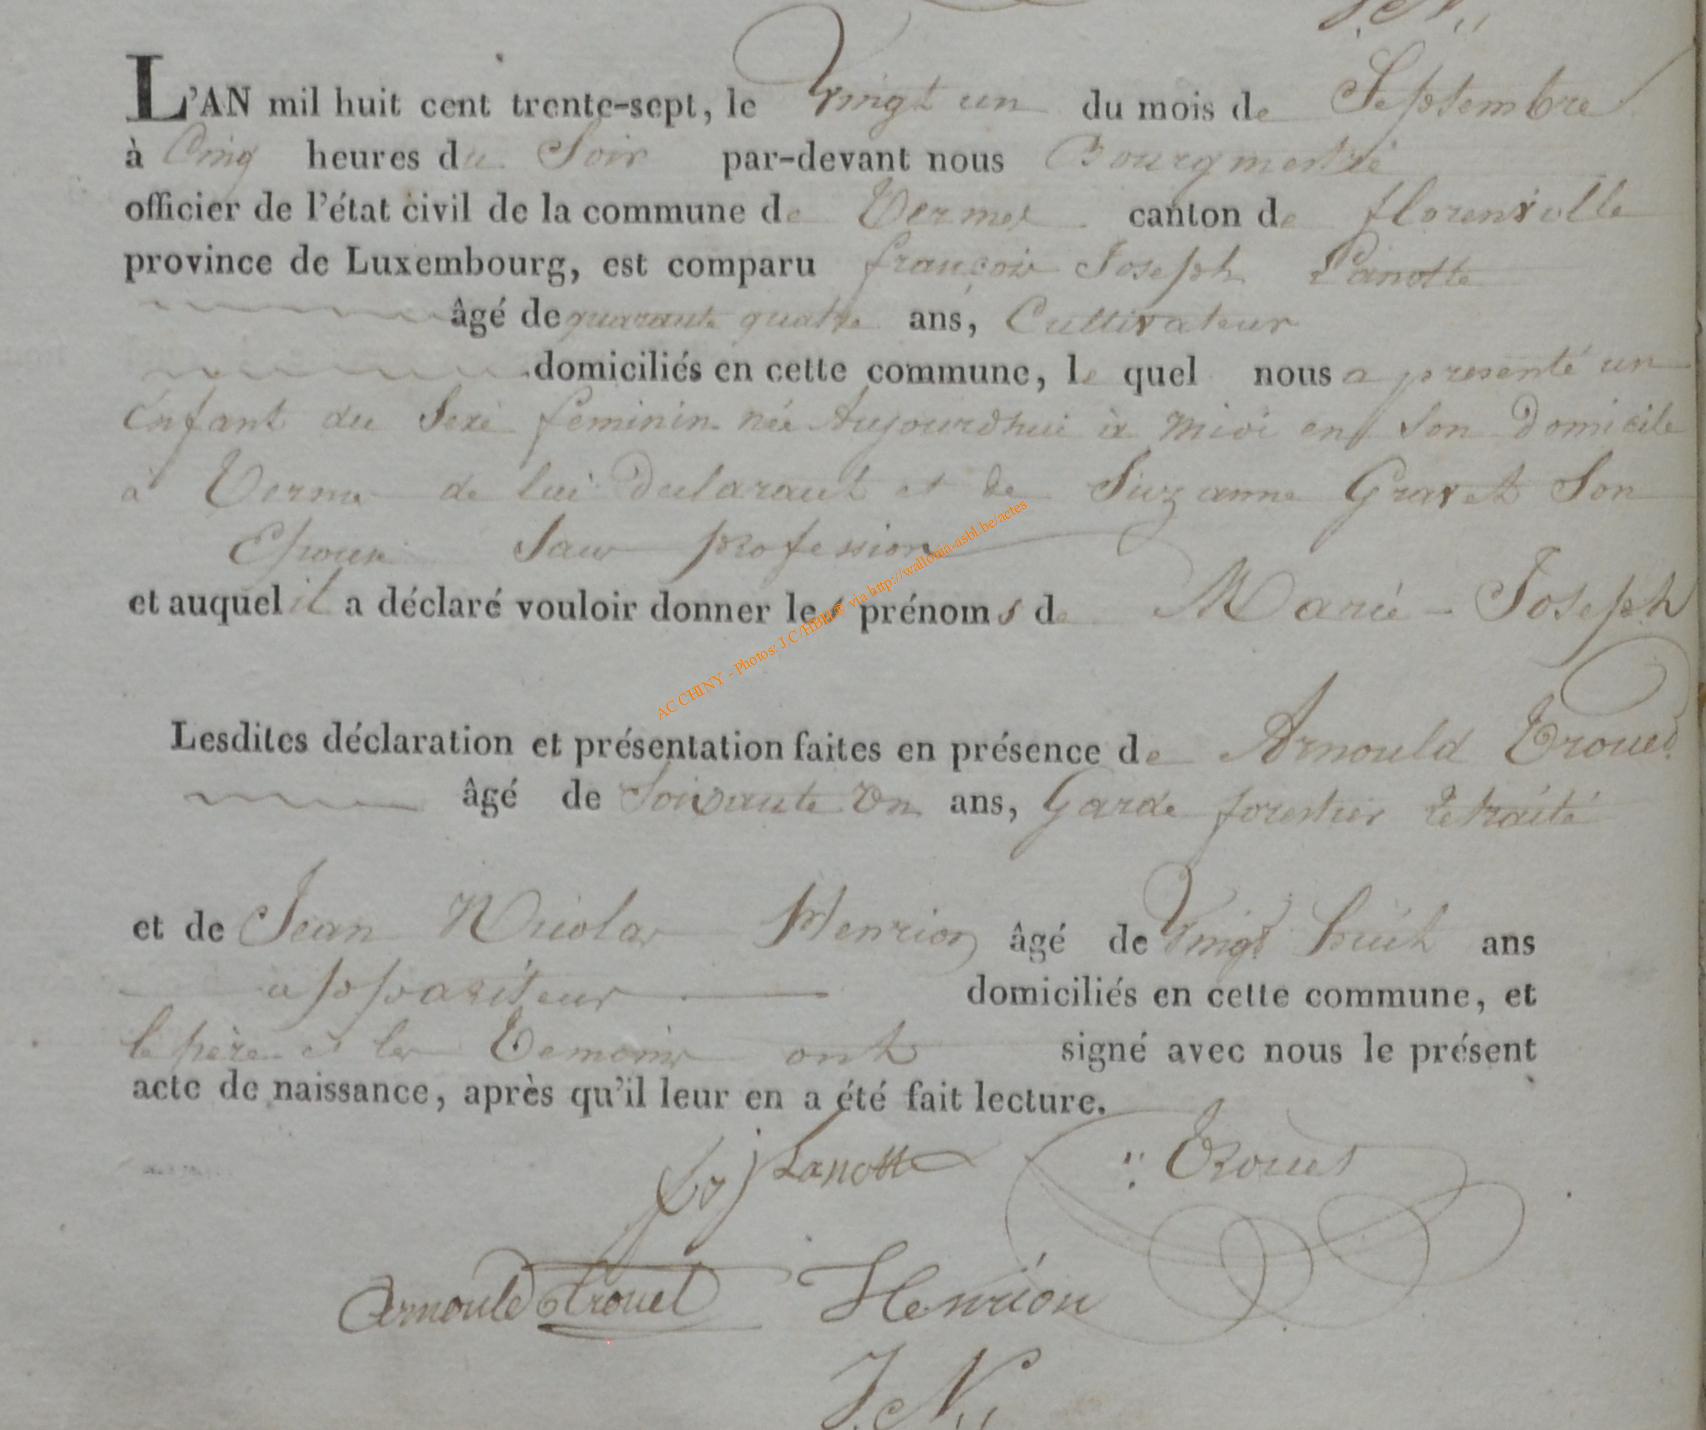 J.N.,,
L'AN mil huit cent trente-sept, le Vingt un du mois de Septembre
à Cinq heures du Soir par-devant nous Bourgmestre
officier de l'état civil de la commune de Termes canton de florenville
province de Luxembourg, est comparu françois Joseph Lanotte
âgé de quarante quatre ans, Cultivateur
domiciliés en cette commune, le quel nous a presenté un
Enfant du Sexe feminin née Aujourdhui à midi en Son Domicile
à Terme de lui Declarant et de Suzanne Gravet Son
Epouse Sans profession
et auquel il a déclaré vouloir donner les prénoms de Marie - Joseph
AC CHINY - Photos: J.C. via http://wallonia-asbl.be/actes
Lesdites déclaration et présentation faites en présence de Arnould Trouet
âgé de Soixante un ans, Garde forestier retraité
et de Jean Nicolas Henrion âgé de Vingt huit ans
appariteur domiciliés en cette commune, et
le père et les Temoins ont signé avec nous le présent
acte de naissance, après qu'il leur en a été fait lecture.
f j Lanotte Trouet
Arnould trouet Henrion
J.N.,,